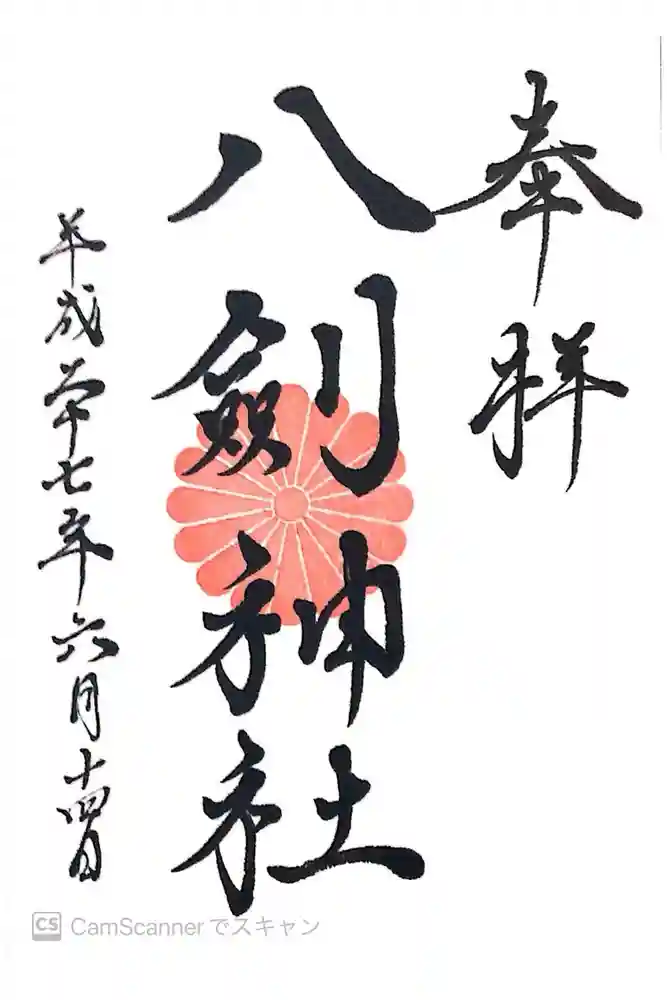 奉拝
八劔神社
平成廿七年六月十四日
CS CamScannerでスキャン